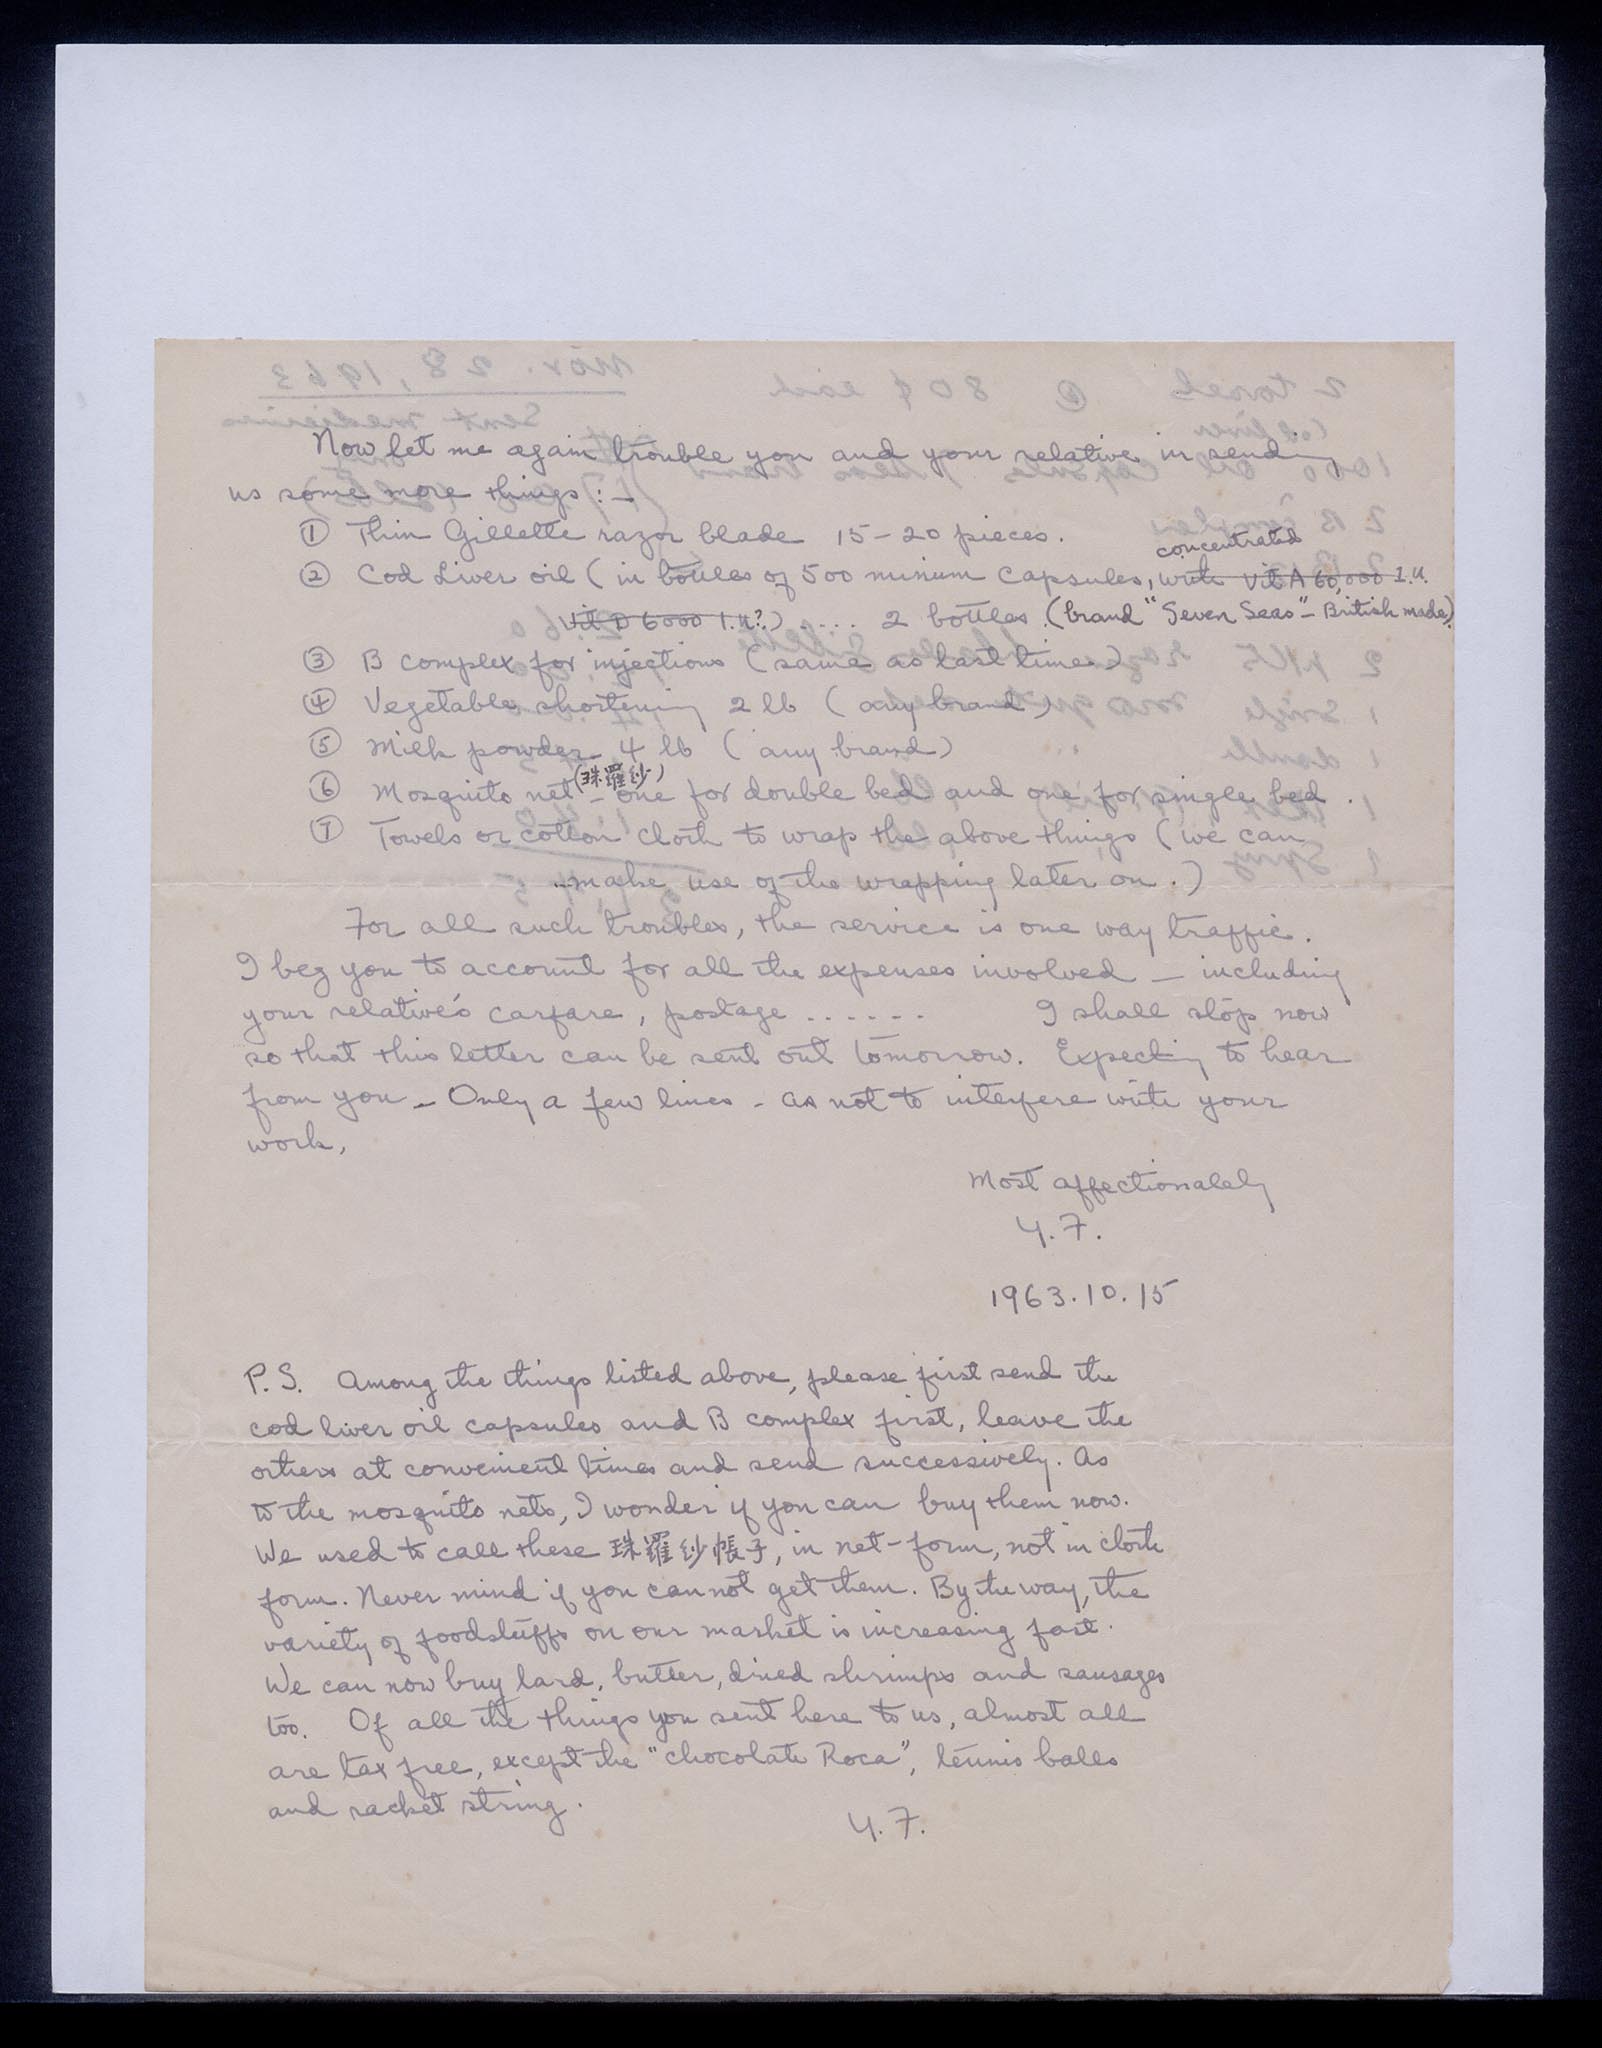 Now let me again trouble you and your relative in sending
us some more things : —
① Thin Gillette razor blade 15-20 pieces.
concentrated
② Cod Liver oil (in bottles of 500 minum capsules, with Vit A 60,000 I.U.
Vit D 6000 I.U?) .... 2 bottles (brand "Seven Seas" - British made).
③ B complex for injections (same as last times)
④ Vegetable shortening 2 lb (any brand)
⑤ Milk powder 4 lb (any brand)
(珠羅紗)
⑥ Mosquito net - one for double bed and one for single bed.
⑦ Towels or cotton cloth to wrap the above things (we can
make use of the wrapping later on.)
For all such troubles, the service is one way traffic.
I beg you to account for all the expenses involved — including
your relative's carfare, postage ...... I shall stop now
so that this letter can be sent out tomorrow. Expecting to hear
from you - Only a few lines - as not to interfere with your
work,
Most affectionately
Y. F.
1963.10.15
P.S. Among the things listed above, please first send the
cod liver oil capsules and B complex first, leave the
others at convenient times and send successively. As
to the mosquito nets, I wonder if you can buy them now.
We used to call these 珠羅紗帳子, in net-form, not in cloth
form. Never mind if you can not get them. By the way, the
variety of foodstuffs on our market is increasing fast.
We can now buy lard, butter, dried shrimps and sausages
too. Of all the things you sent here to us, almost all
are tax free, except the "chocolate Roca", tennis balls
and racket string.
Y. F.
Nov. 28, 1963
2 towels @ 80¢ each
Sent medicines